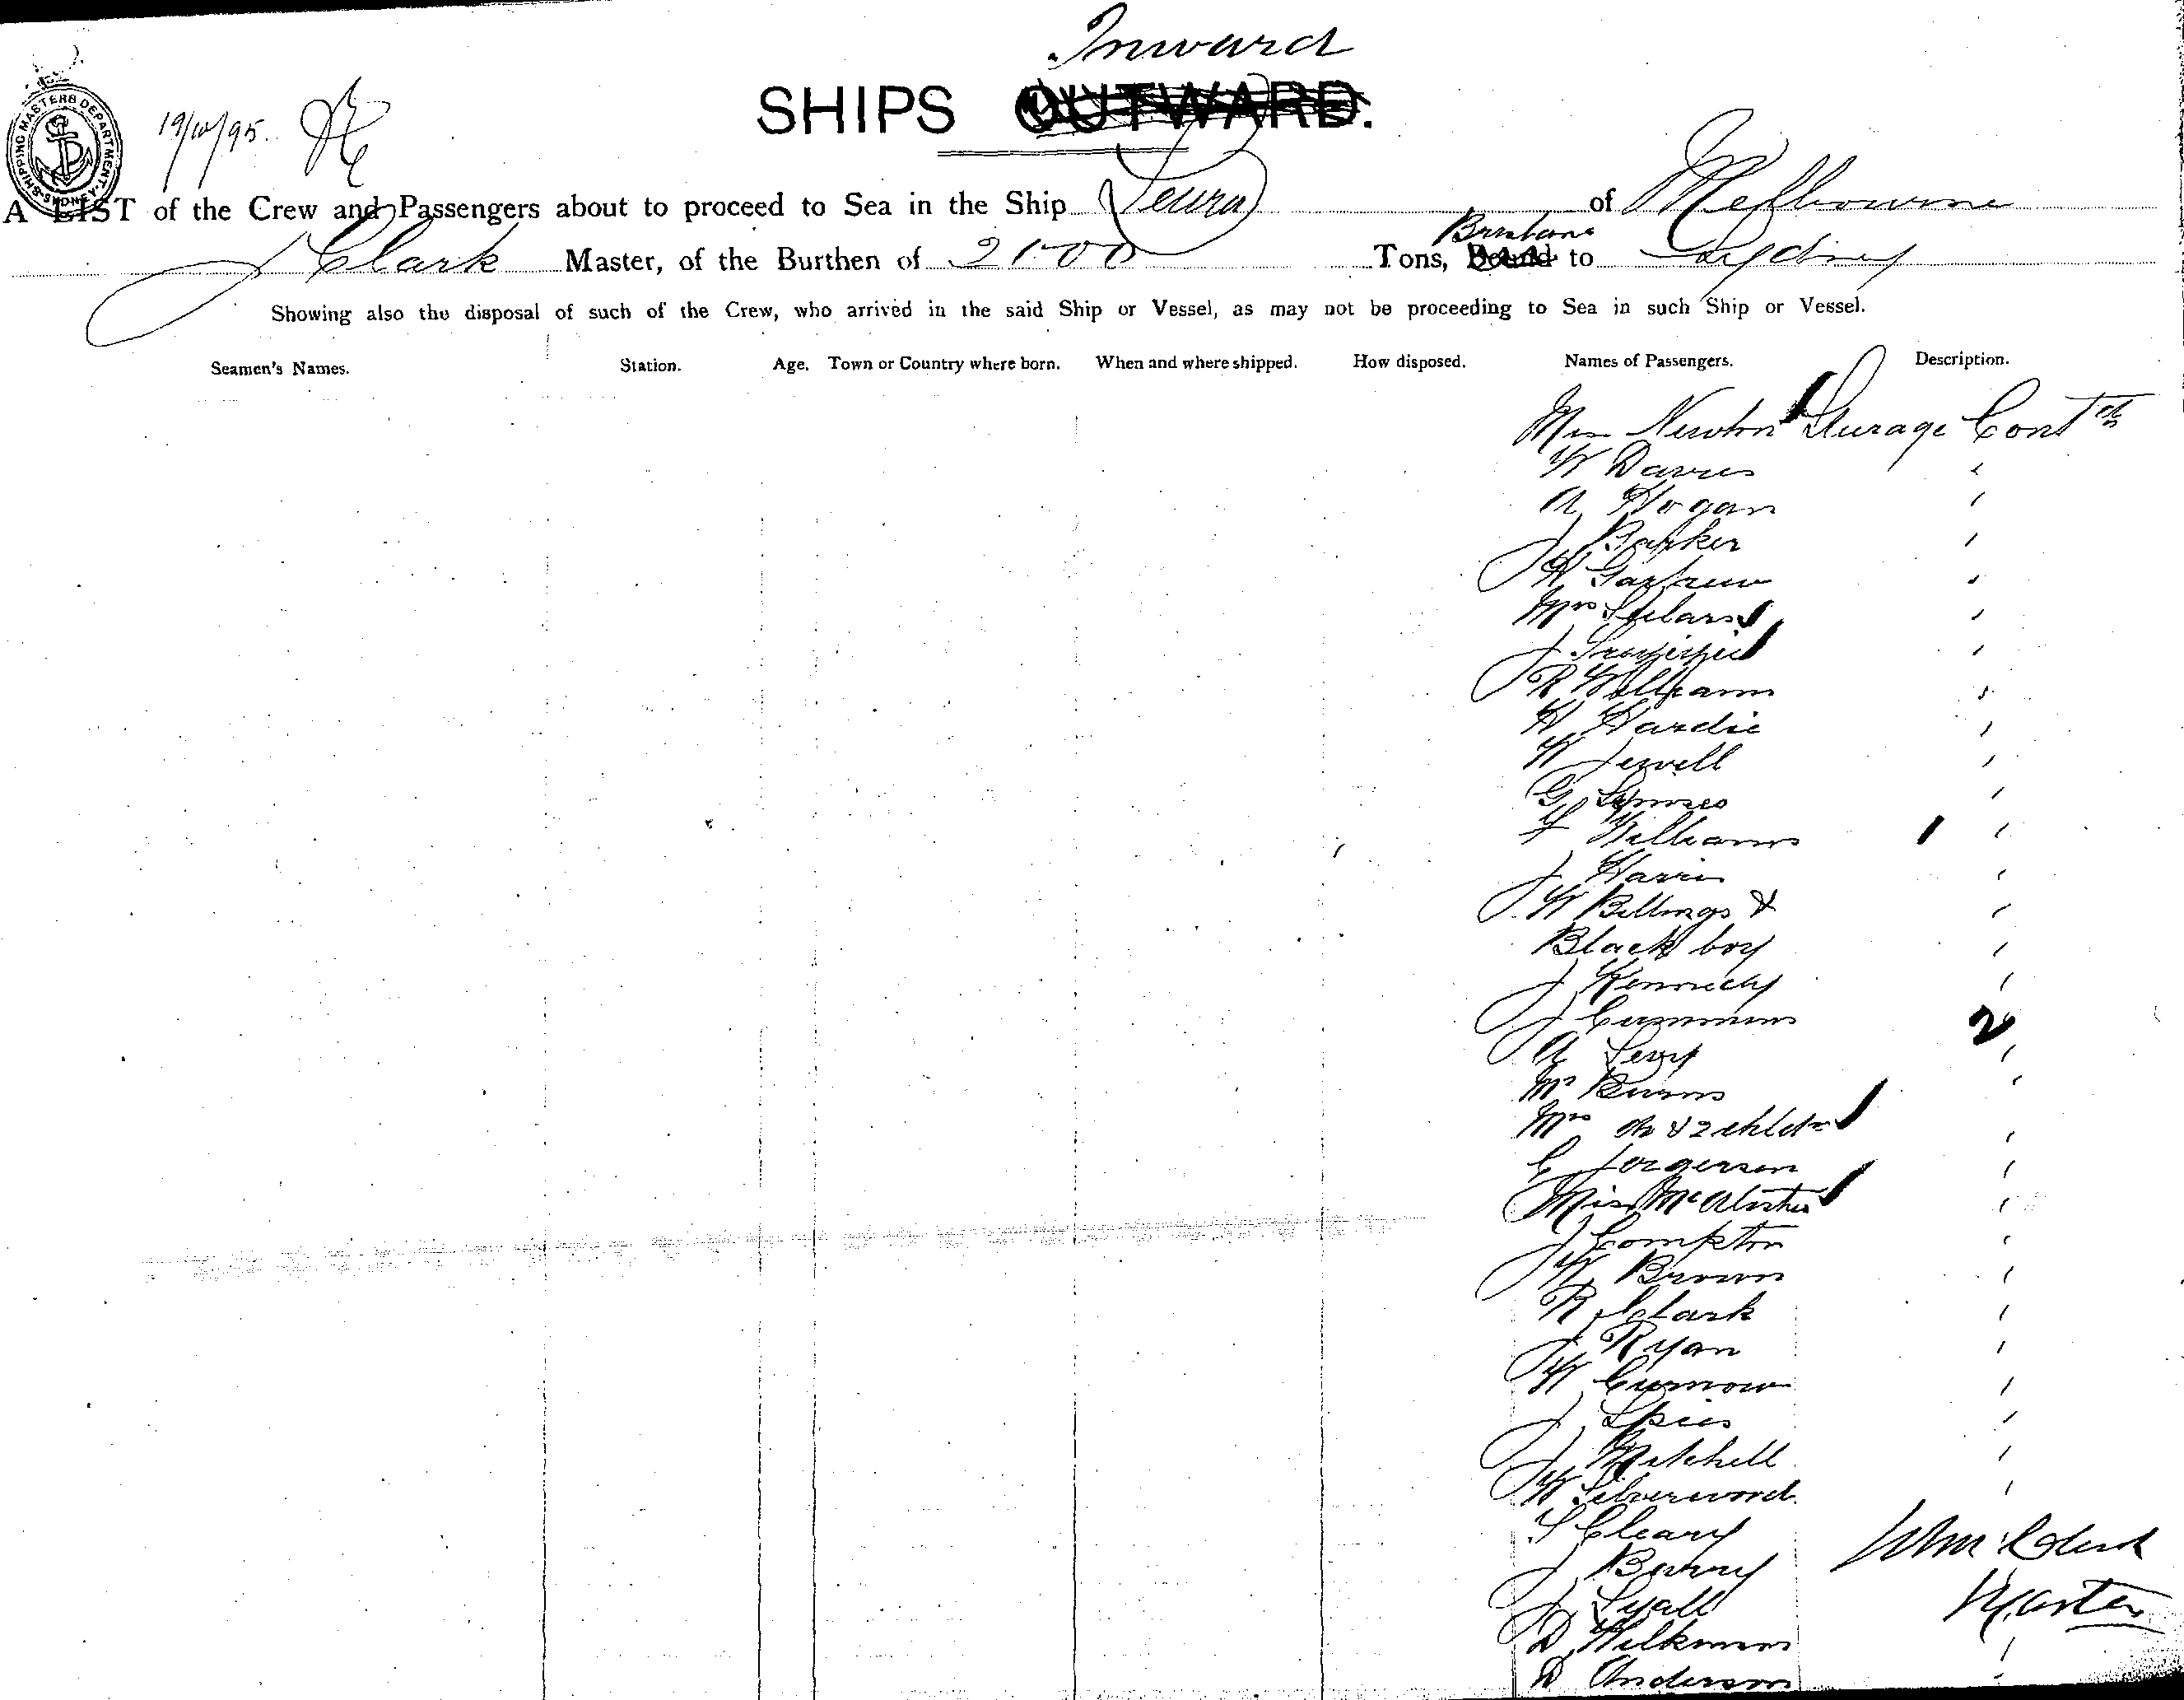 Inward
SHIPS OUTWARD.
SHIPPING MASTERS DEPARTMENT
19/10/95.
A LIST of the Crew and Passengers about to proceed to Sea in the Ship Leura of Melbourne
J Clark Master, of the Burthen of 2100 Tons, Brisbane to Sydney
Showing also the disposal of such of the Crew, who arrived in the said Ship or Vessel, as may not be proceeding to Sea in such Ship or Vessel.
Seamen's Names. Station. Age. Town or Country where born. When and where shipped. How disposed. Names of Passengers. Description.
Newton Steerage Contd
W Davies
A Hogan
J Barker
H
Mrs
J
R Williams
H Hardie
W Jewell
G
Williams
J Harris
W Billings &
Black boy
J Kennedy
J Cummins
A Levy 2
Mr Burns
Mrs do & 2 chldn
Jorgensen
Miss McAlister
J Compton
W Brown
R Clark
J Ryan
W Curnow
J Spies
J Mitchell
W Silverwood
Cleary
J Barry
John Clark
J Lyall
Master
D Wilkinson
D Anderson